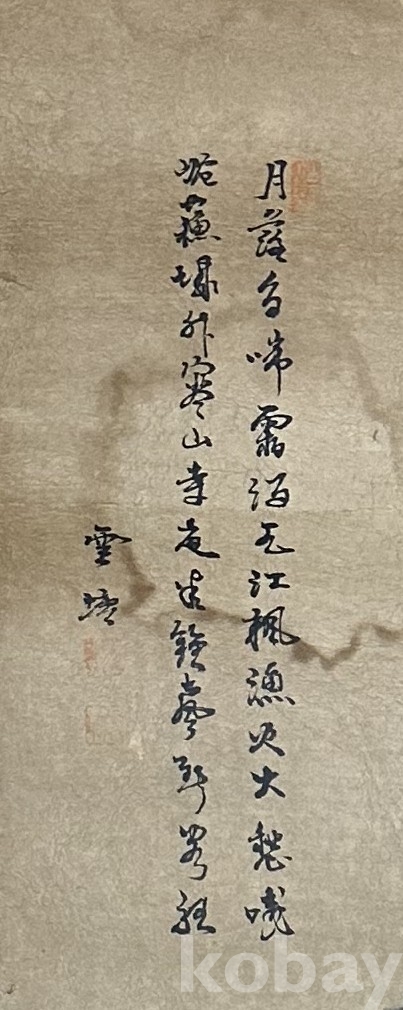 月落烏啼霜滿天江楓漁火對愁眠
姑蘇城外寒山寺夜半鐘聲到客船
雲
kobay